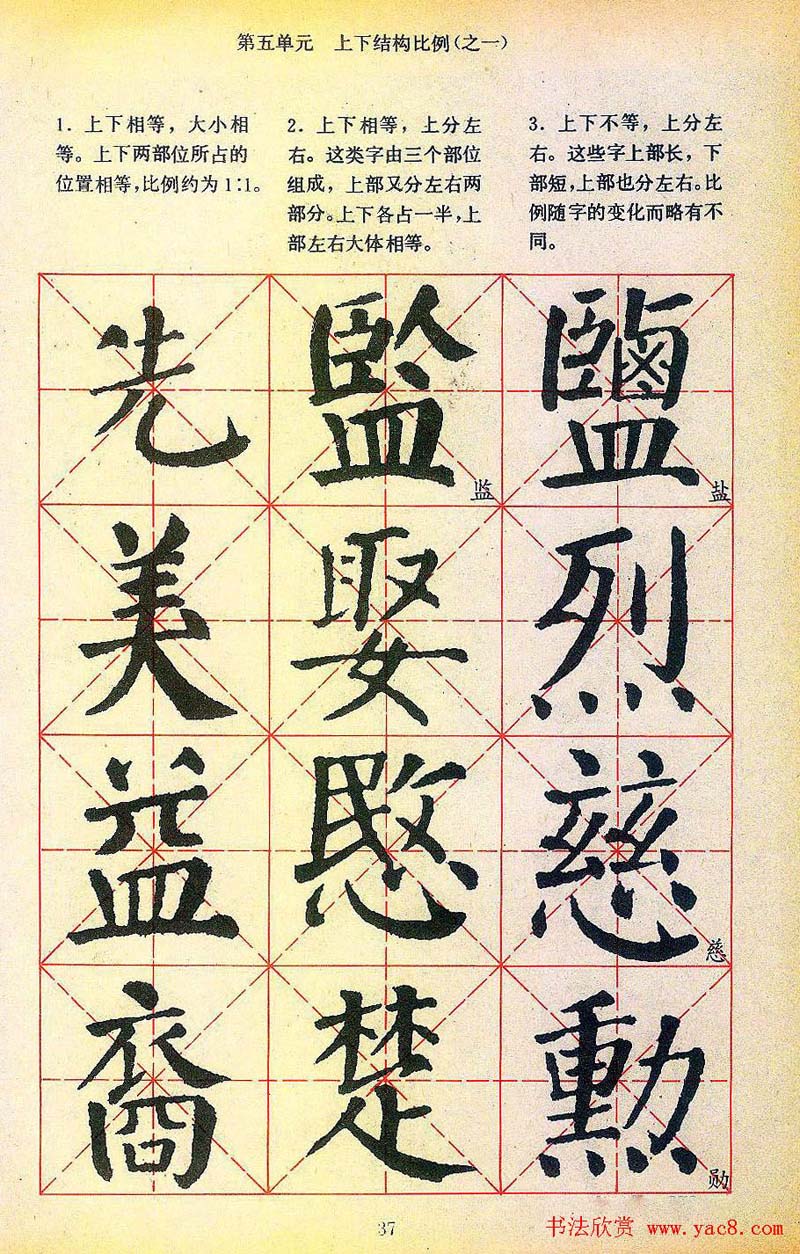 第五单元　上下结构比例(之一)
1. 上下相等，大小相
等。上下两部位所占的
位置相等，比例约为1∶1。
2. 上下相等，上分左
右。这类字由三个部位
组成，上部又分左右两
部分。上下各占一半，上
部左右大体相等。
3. 上下不等，上分左
右。这些字上部长，下
部短，上部也分左右。比
例随字的变化而略有不
同。
先 監 监 鹽 盐
美 娶 烈
益 愍 慈 慈
裔 楚 勳 勋
37
书法欣赏 www.yac8.com